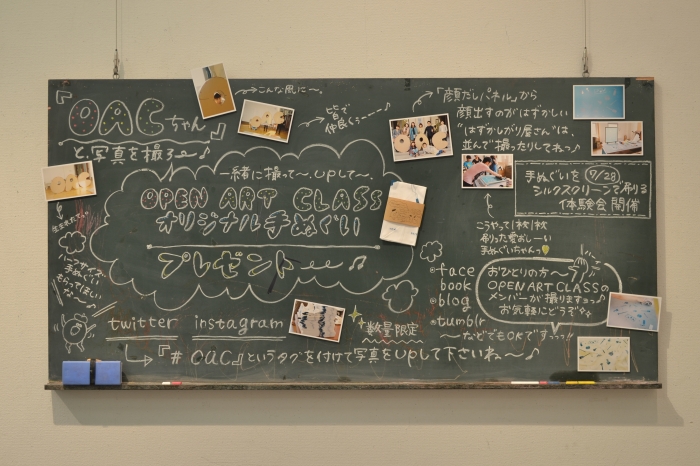 『OACちゃん』
と、写真を撮ろ〜♪
こんな風に〜。
皆で
仲良く〜♪
「顔だしパネル」から
顔出すのがはずかしい
"はずかしがり屋さん"は、
並んで撮ったりしてねっ♪
一緒に撮って〜、upして〜、
OPEN ART CLASS
オリジナル手ぬぐい
プレゼント
手ぬぐいを 7/28
シルクスクリーンで刷る
体験会 開催
こうやって1枚1枚
刷った愛おしい
手ぬぐいちゃんっ
ハーフサイズ
手ぬぐい
もらってほしい
な〜
・face
book
・blog
・tumblr
〜などでもOKですっっっ!!
おひとりの方〜
OPEN ART CLASSの
メンバーが撮りますョっ♪
お気軽にどうぞ
数量限定
twitter instagram
『# oac』というタグを付けて写真をupして下さいね〜♪